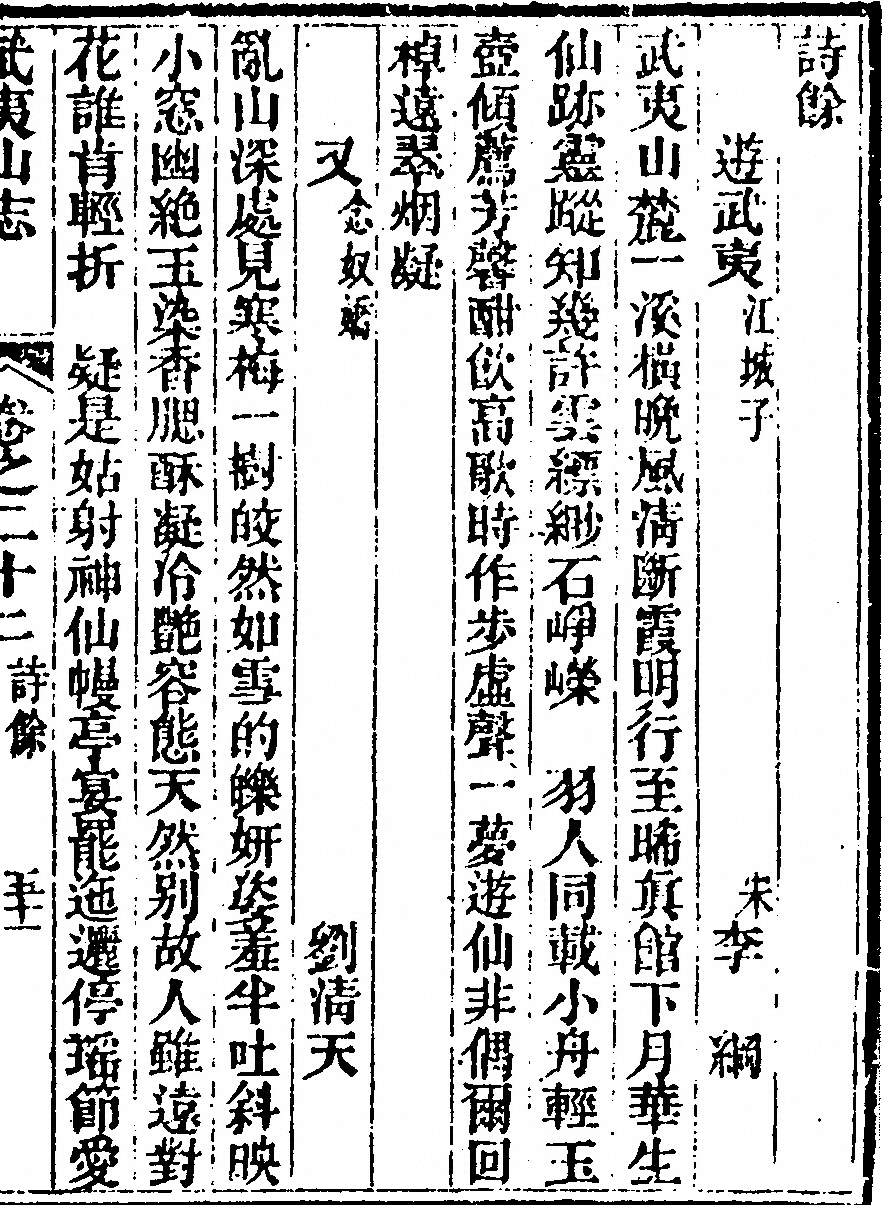 詩餘
遊武夷 江城子 宋李 綱
武夷山麓一溪橫晚風清斷霞明行至晞真館下月華生
仙跡靈蹤知幾許雲縹緲石崢嶸 羽人同載小舟輕玉
壺傾薦芳馨酣飲高歌時作步虛聲一夢遊仙非偶爾回
棹遠翠烟凝
又 念奴嬌 劉清天
亂山深處見寒梅一樹皎然如雪的皪妍姿羞半吐斜映
小窓幽絶玉染香腮酥凝冷艷容態天然別故人雖遠對
花誰肯輕折 疑是姑射神仙幔亭宴罷迤邐停瑤節愛
武夷山志 卷之二十二 詩餘 五十一